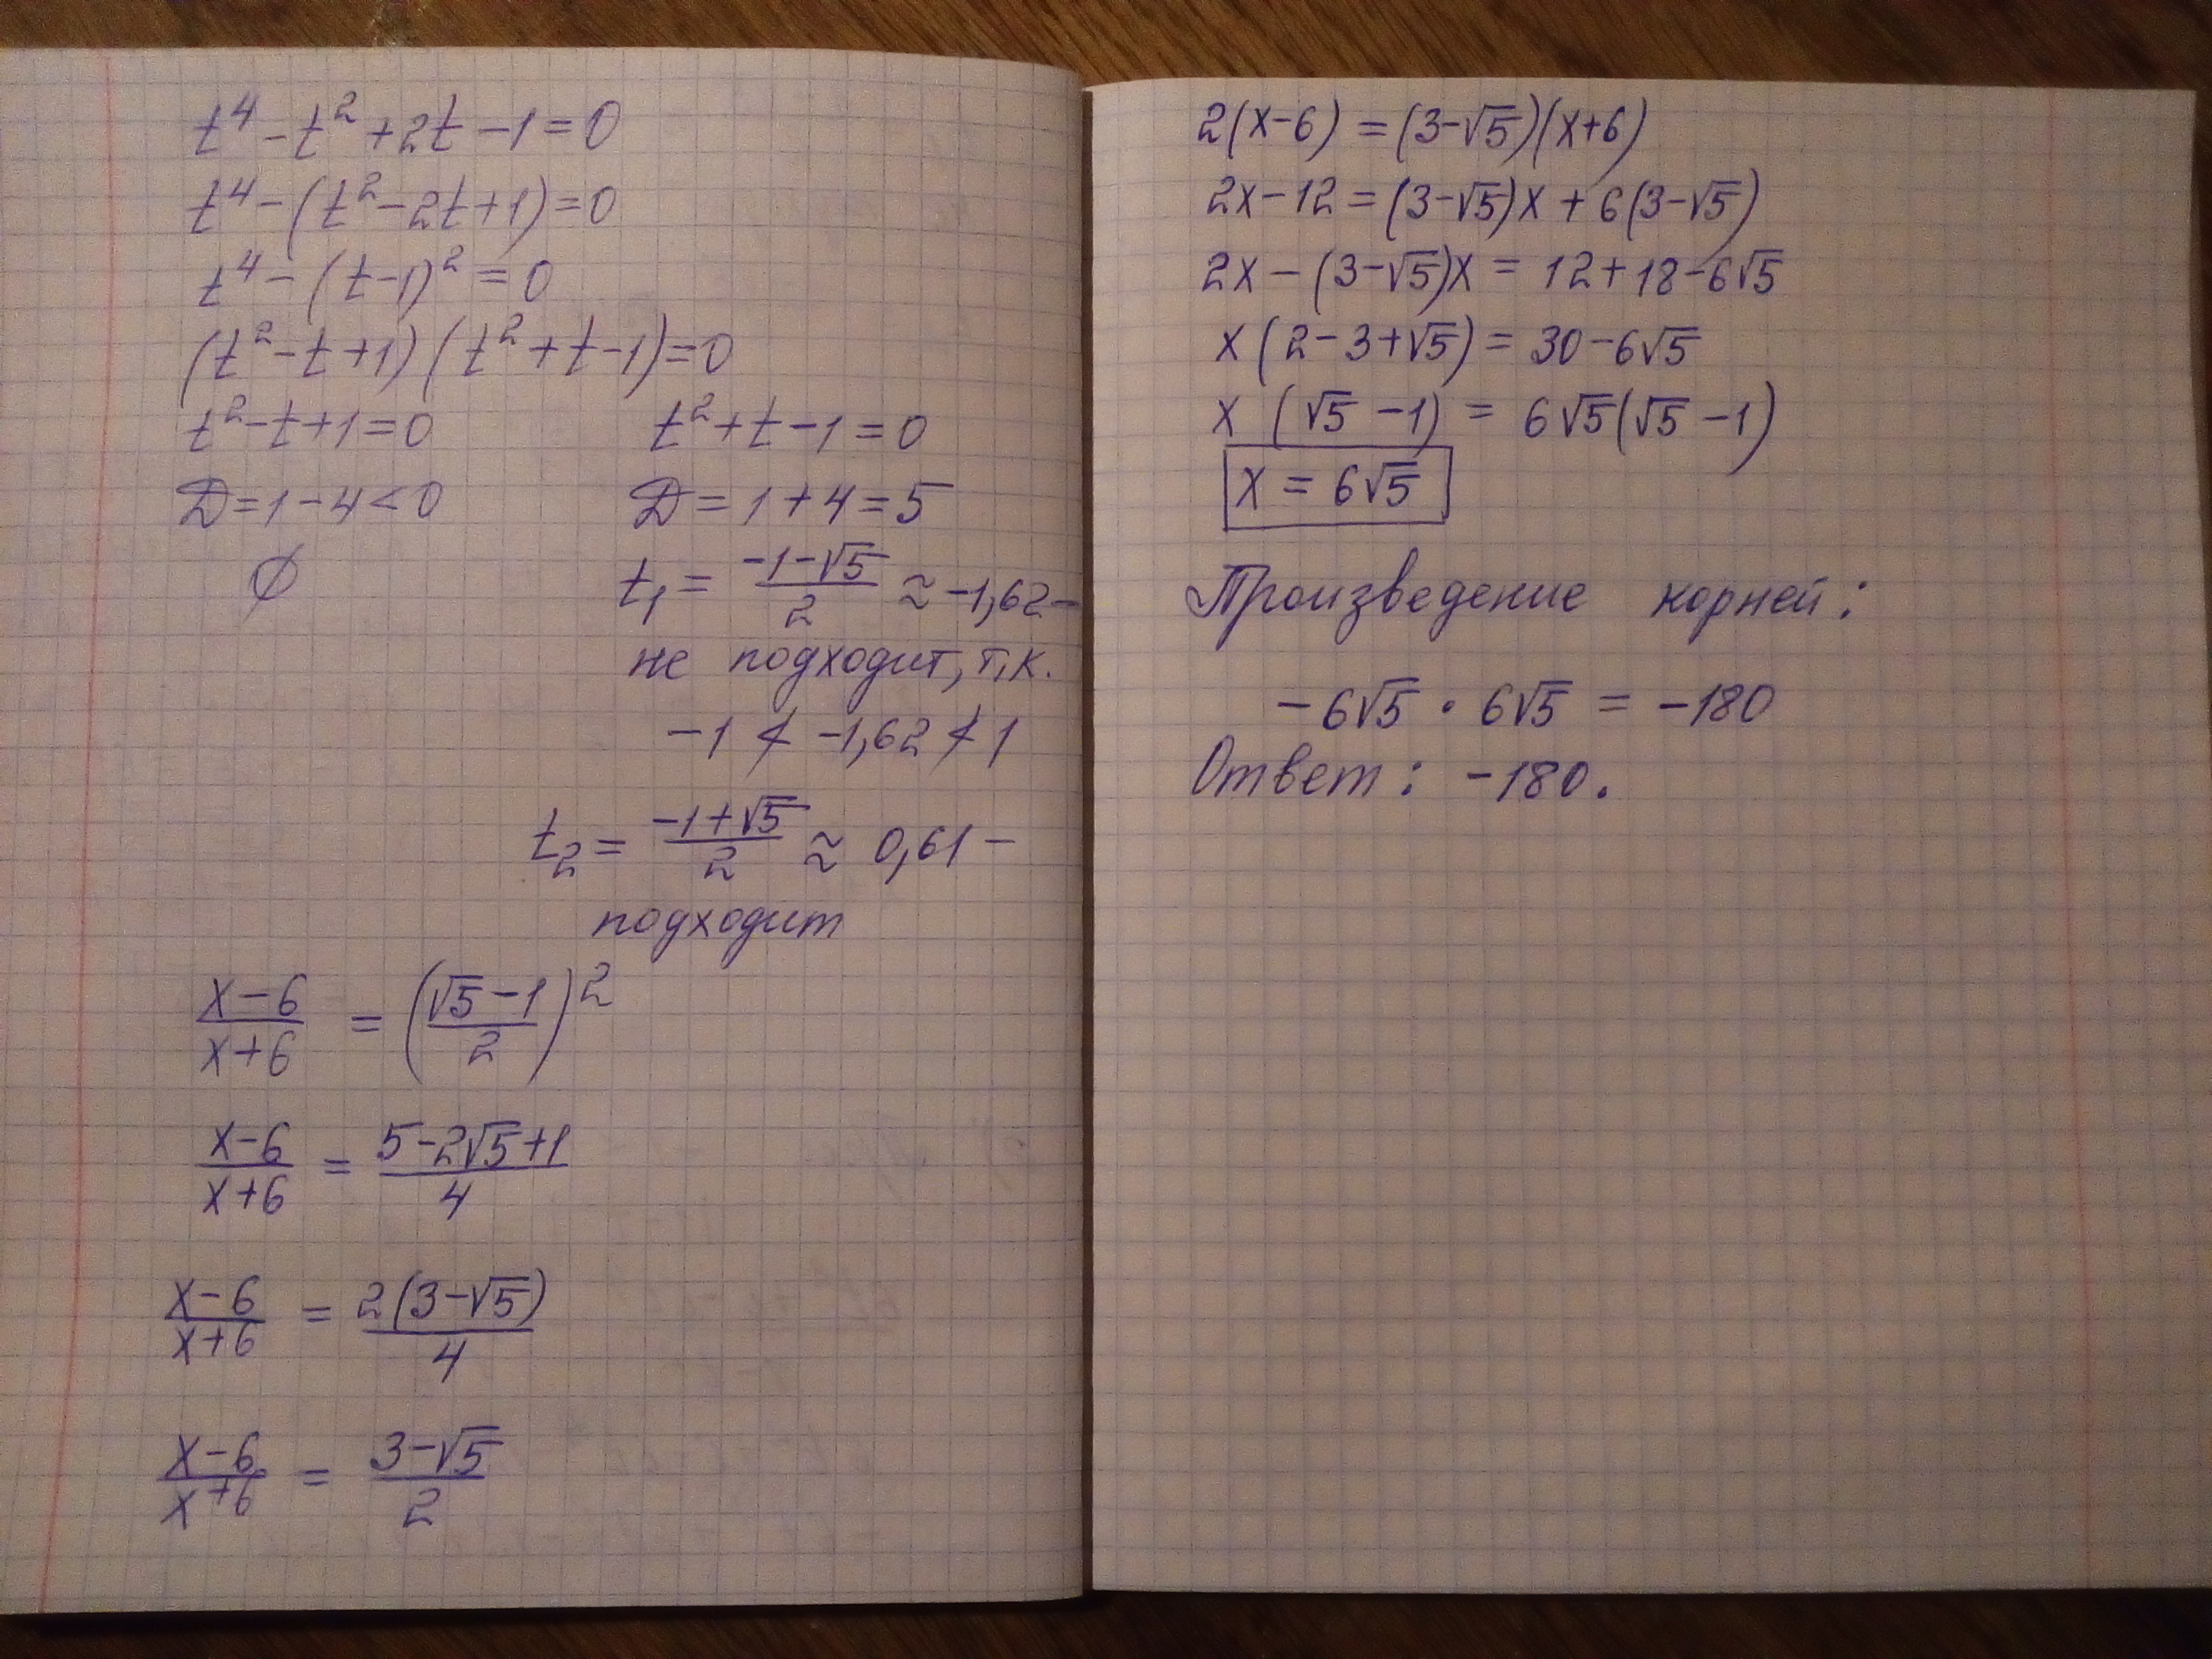 t⁴ - t² + 2t - 1 = 0
t⁴ - (t² - 2t + 1) = 0
t⁴ - (t - 1)² = 0
(t² - t + 1)(t² + t - 1) = 0
t² - t + 1 = 0    t² + t - 1 = 0
D = 1 - 4 < 0    D = 1 + 4 = 5
∅    t₁ = (-1 - √5)/2 ≈ -1,62 -
не подходит, т.к.
-1 ≮ -1,62 ≮ 1
t₂ = (-1 + √5)/2 ≈ 0,61 -
подходит
(x - 6)/(x + 6) = ((√5 - 1)/2)²
(x - 6)/(x + 6) = (5 - 2√5 + 1)/4
(x - 6)/(x + 6) = 2(3 - √5)/4
(x - 6)/(x + 6) = (3 - √5)/2
2(x - 6) = (3 - √5)(x + 6)
2x - 12 = (3 - √5)x + 6(3 - √5)
2x - (3 - √5)x = 12 + 18 - 6√5
x(2 - 3 + √5) = 30 - 6√5
x (√5 - 1) = 6√5(√5 - 1)
x = 6√5
Произведение корней:
-6√5 · 6√5 = -180
Ответ: -180.